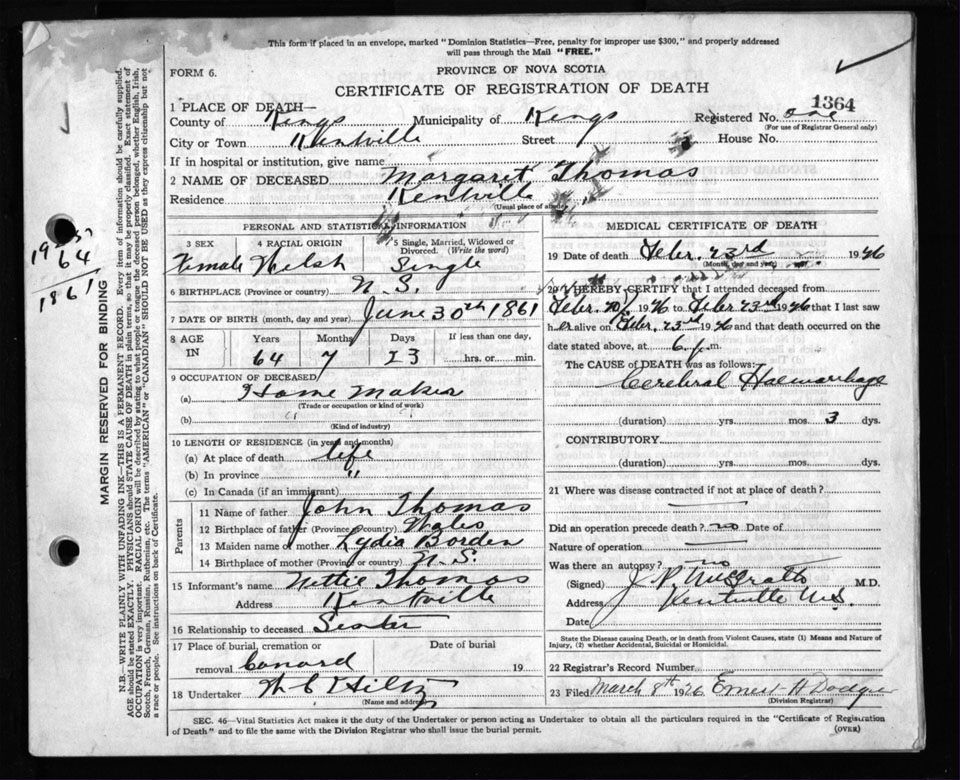 This form if placed in an envelope, marked "Dominion Statistics—Free, penalty for improper use $300," and properly addressed
will pass through the Mail "FREE."
FORM 6.
PROVINCE OF NOVA SCOTIA
CERTIFICATE OF REGISTRATION OF DEATH
1364
1 PLACE OF DEATH—
County of Kings Municipality of Kings Registered No. one
(For use of Registrar General only)
City or Town Kentville Street House No.
If in hospital or institution, give name
2 NAME OF DECEASED Margaret Thomas
Residence Kentville
(Usual place of abode)
PERSONAL AND STATISTICAL INFORMATION
3 SEX 4 RACIAL ORIGIN 5 Single, Married, Widowed or
Divorced. (Write the word)
Female Welsh Single
6 BIRTHPLACE (Province or country) N.S.
7 DATE OF BIRTH (month, day and year) June 30th 1861
8 AGE
IN
Years Months Days If less than one day,
64 7 23 hrs. or min.
9 OCCUPATION OF DECEASED
(a) Home Maker
(Trade or occupation or kind of work)
(b)
(Kind of industry)
10 LENGTH OF RESIDENCE (in years and months)
(a) At place of death life
(b) In province "
(c) In Canada (if an immigrant)
Parents
11 Name of father John Thomas
12 Birthplace of father (Province or country) Wales
13 Maiden name of mother Lydia Borden
14 Birthplace of mother (Province or country) N.S.
15 Informant's name Nettie Thomas
Address Kentville
16 Relationship to deceased Sester
17 Place of burial, cremation or Date of burial
removal Canard 19
18 Undertaker W C Hiltz
(Name and address)
MEDICAL CERTIFICATE OF DEATH
19 Date of death Febr. 23rd 1926
(Month, day and year)
20 I HEREBY CERTIFY that I attended deceased from
Febr. 20, 1926 to Febr 23rd 1926 that I last saw
her alive on Febr. 23rd 1926 and that death occurred on the
date stated above, at 6 p.m.
The CAUSE of DEATH was as follows:
Cerebral Haemorrhage
(duration) yrs. mos. 3 dys.
CONTRIBUTORY
(duration) yrs. mos. dys.
21 Where was disease contracted if not at place of death?
Did an operation precede death? no Date of
Nature of operation
Was there an autopsy? no
(Signed) J. P. M.D.
Address Kentville N.S.
Date
State the Disease causing Death, or in death from Violent Causes, state (1) Means and Nature of
Injury, (2) whether Accidental, Suicidal or Homicidal.
22 Registrar's Record Number
23 Filed March 8th 1926 Ernest H Dodge
(Division Registrar)
SEC. 46—Vital Statistics Act makes it the duty of the Undertaker or person acting as Undertaker to obtain all the particulars required in the "Certificate of Registration
of Death" and to file the same with the Division Registrar who shall issue the burial permit.
(OVER)
64
1861
MARGIN RESERVED FOR BINDING
N.B.—WRITE PLAINLY WITH UNFADING INK—THIS IS A PERMANENT RECORD. Every item of information should be carefully supplied.
AGE should be stated EXACTLY. PHYSICIANS should STATE CAUSE OF DEATH in plain terms, so that it may be properly classified. Exact statement of
OCCUPATION is very important. RACIAL ORIGIN will be described by stating to what people or tongue the deceased person belonged, whether English, Irish,
Scotch, French, German, Russian, Ruthenian, etc. The terms "AMERICAN" or "CANADIAN" SHOULD NOT BE USED as they express citizenship but not
a race or people. See instructions on back of Certificate.